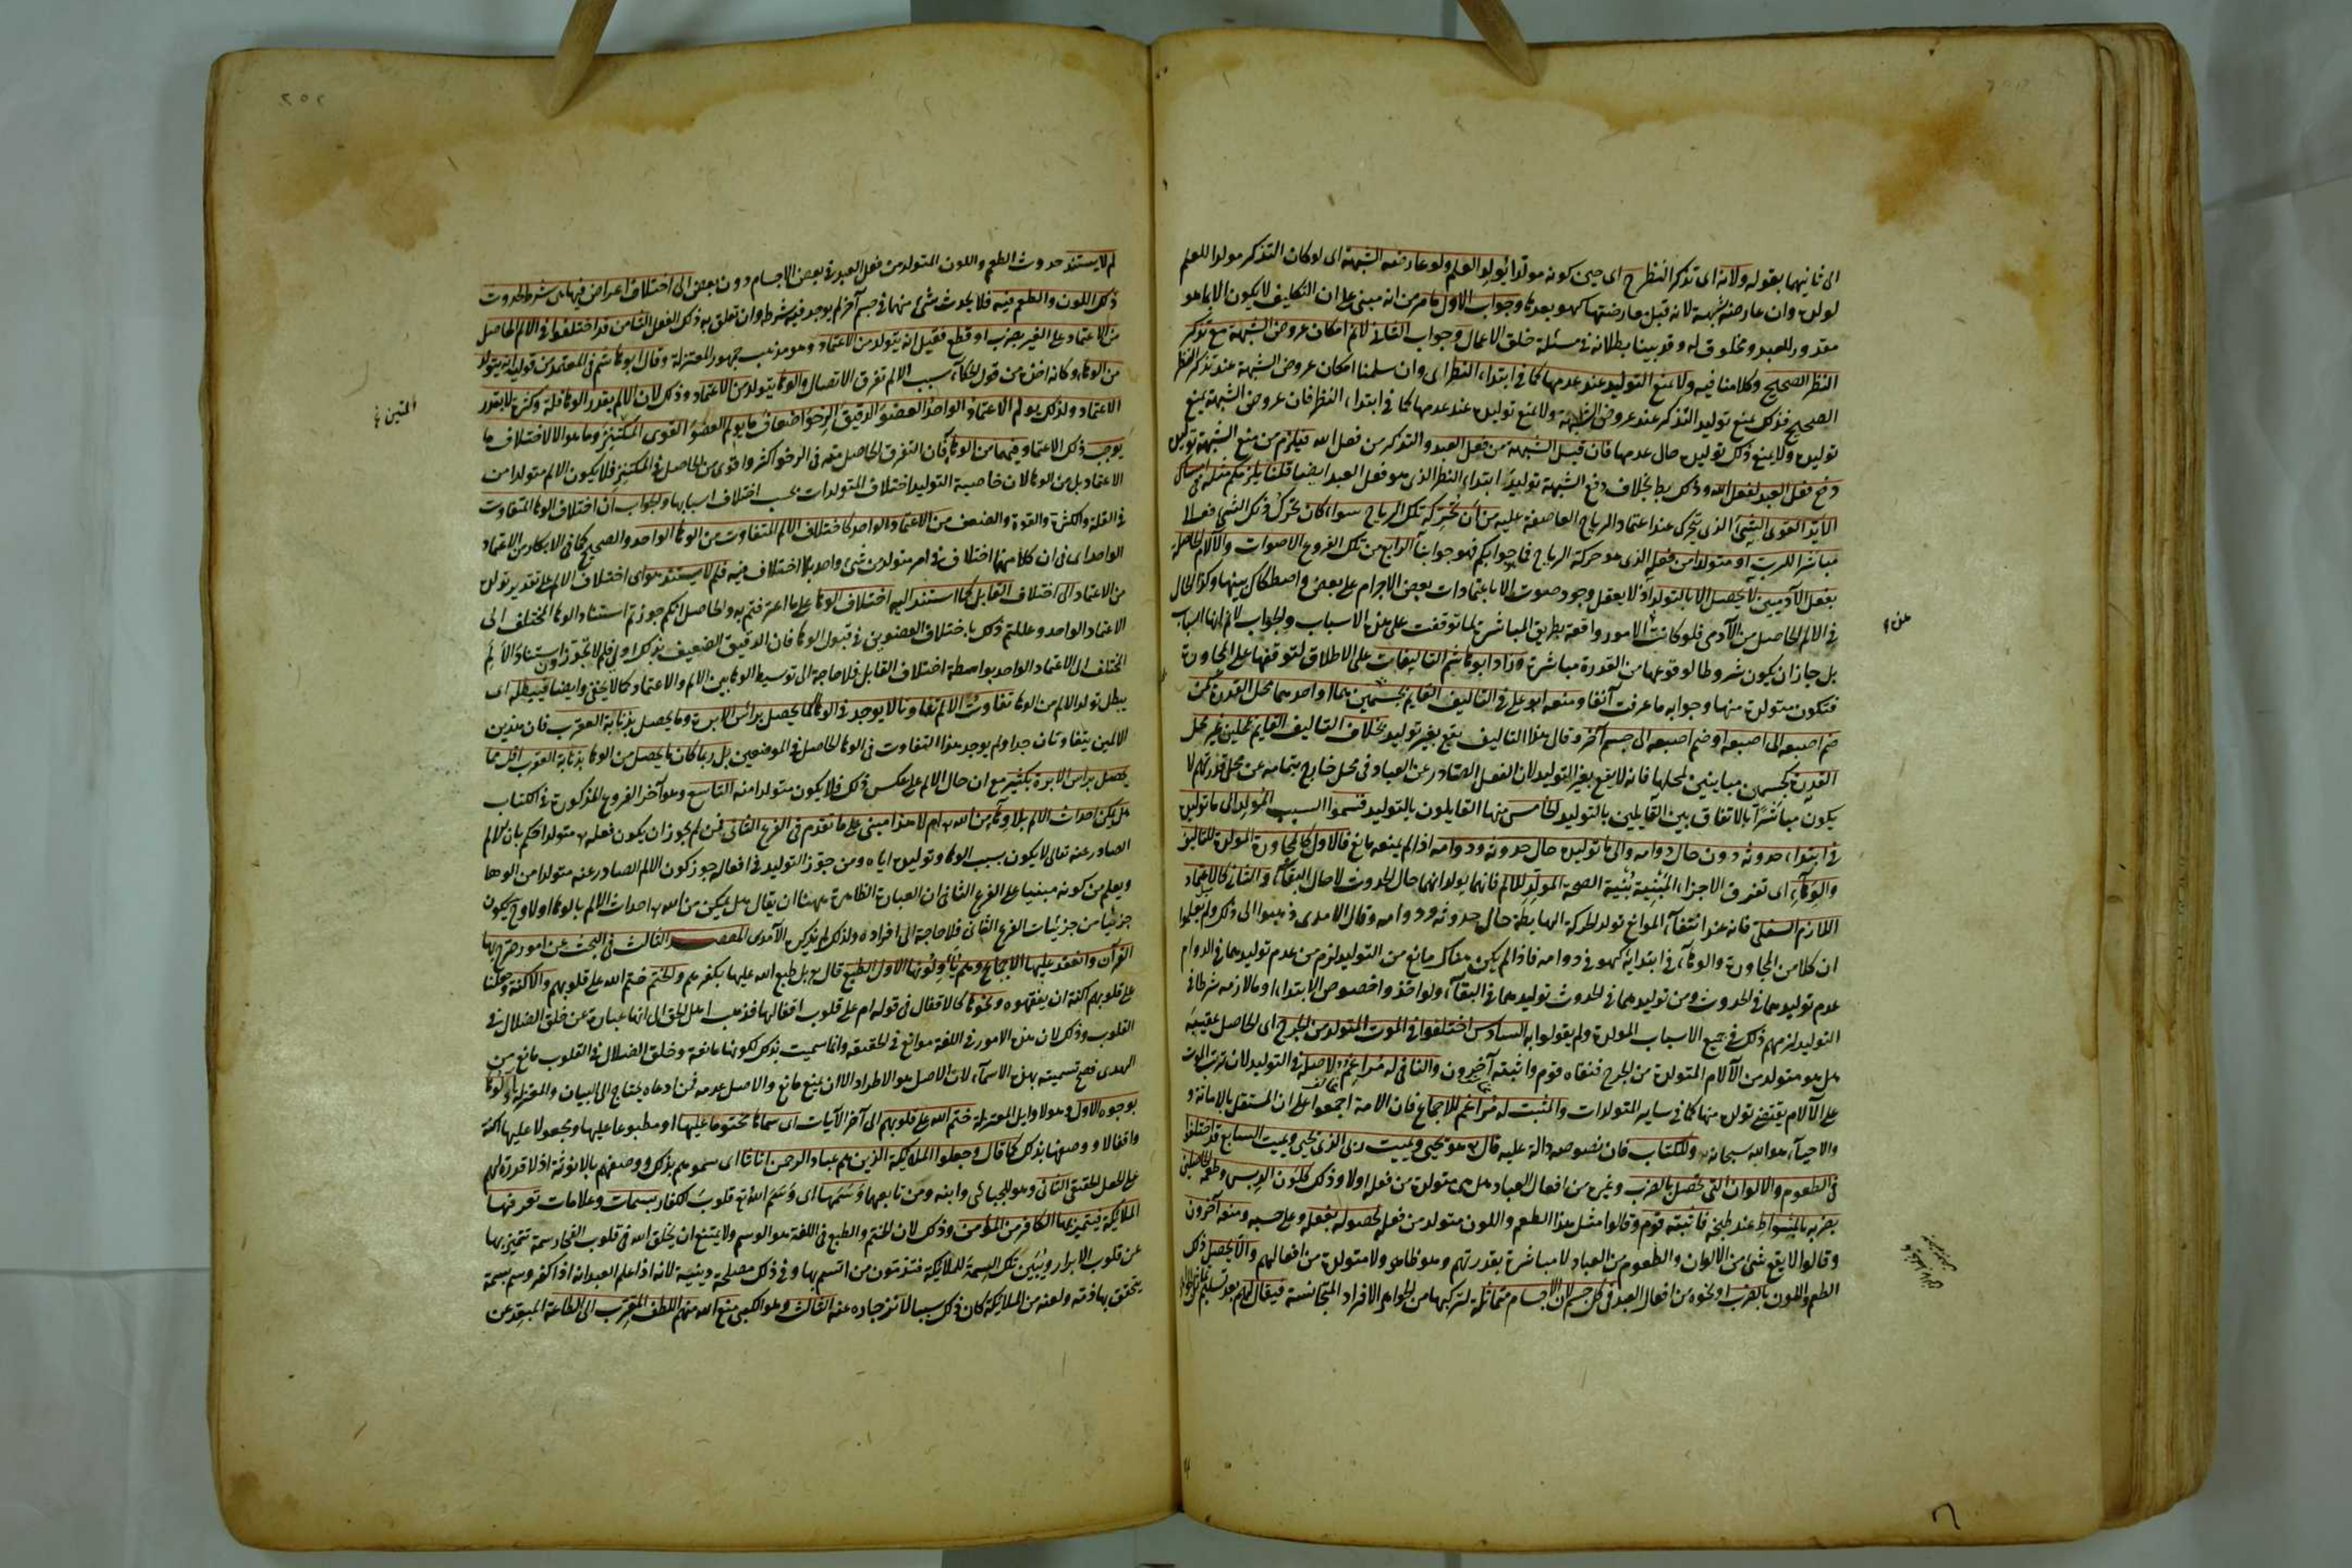 الى ثانيهما بقوله ولانه اى تذكر النظر ح اى حين كونه مولدا يولد العلم ولو عارضه الشبهة اى لو كان التذكر مولدا للعلم
لولده وان عارضته شبهة لانه قبل معارضتها كهو بعدها وجواب الاول ما مر من انه مبنى على ان التكليف لا يكون الا بما هو
مقدور للعبد ومخلوق له وقد بينا بطلانه فى مسئلة خلق الاعمال وجواب الثانى لانم امكان عروض الشبهة مع تذكر
النظر الصحيح وكلامنا فيه ولا يمنع التوليد عند عدمها كما فى ابتداء النظر اى وان سلمنا امكان عروض الشبهة عند تذكر النظر
الصحيح فذلك يمنع توليد التذكر عند عروض الشبهة ولا يمنع توليده عند عدمها كما فى ابتداء النظر فان عروض الشبهة يمنع
توليده ولا يمنع ذلك توليده حال عدمها فان قيل الشبهة من فعل العبد والتذكر من فعل الله فيلزم من منع الشبهة توليده
دفع فعل العبد لفعل الله وذلك بط بخلاف دفع الشبهة توليد ابتداء النظر الذى هو فعل العبد ايضا قلنا يلزمكم مثله فى امساك
الايد القوى الشئ الذى يتحرك عند اعتماد الرياح العاصفة عليه من ان تحركه تلك الرياح سواء كان تحرك ذلك الشئ فعلا
مباشرا للرب او متولدا من فعله الذى هو حركة الرياح فما جوابكم فهو جوابنا الرابع من تلك الفروع الاصوات والآلام الحاصلة
بفعل الآدميين لا يحصل الا بالتولد اذ لا يعقل وجود صوت الا باعتمادات بعض الاجرام على بعض واصطكاك بينها وكذا الحال
فى الالم الحاصل من الآدمى فلو كانت الامور واقعة بطريق المباشرة لما توقفت على هذه الاسباب والجواب لانم انها اسباب
بل جاز ان يكون شروطا لوقوعها من القدرة مباشرة وزاد ابو هاشم التاليفات على الاطلاق لتوقفها على المجاورة
فتكون متولدة منها وجوابه ما عرفت آنفا ومنعه ابو على فى التاليف القايم بجسمين هما او احدهما محل القدرة كمن
ضم اصبعه الى اصبعه او ضم اصبعه الى جسم آخر وقال هذا التاليف يقع بغير توليد بخلاف التاليف القايم بمحلين غير محل
القدرة كجسمين مباينين لمحلها فانه لا يقع بغير التوليد لان الفعل الصادر عن العباد فى محل خارج بتمامه عن محل قدرتهم لا
يكون مباشرا بالاتفاق بين القايلين بالتوليد الخامس منها القايلون بالتوليد قسموا السبب المولد الى ما توليده
فى ابتداء حدوثه دون حال دوامه والى ما توليده حال حدوثه ودوامه اذا لم يمنعه مانع فالاول كالمجاورة المولدة للتاليف
والوهاء اى تفرق الاجزاء المبنية بنية الصحة المولد للالم فانهما يولدانهما حال الحدوث لا حال البقاء والثانى كالاعتماد
اللازم السفلى فانه عند انتفاء الموانع تولد الحركة الهابطة حال حدوثه ودوامه وقال الامدى ذهبوا الى ذلك ولم يعلموا
ان كلا من المجاورة والوهاء فى ابتدائه كهو فى دوامه فاذا لم يكن هناك مانع من التوليد لزم من عدم توليدهما فى الدوام
عدم توليدهما فى الحدوث ومن توليدهما فى الحدوث توليدهما فى البقاء ولو اخذوا خصوص الابتداء او ما لازمه شرطا فى
التوليد لزمهم ذلك فى جميع الاسباب المولدة ولم يقولوا به السادس اختلفوا فى الموت المتولد من الجرح اى الحاصل عقيبه
هل هو متولد من الآلام المتولدة من الجرح فنفاه قوم واثبته آخرون والنافى له مراغم لاصله فى التوليد لان ترتب الموت
على الآلام يقتضى تولده منها كما فى ساير المتولدات والمثبت له مراغم للاجماع فان الامة اجمعوا على ان المستقل بالاماتة و
والاحياء هو الله سبحانه وللكتاب فان نصوصه دالة عليه قال تع هو يحيى ويميت ربى الذى يحيى ويميت السابع قد اختلفوا
فى الطعوم والالوان التى تحصل بالضرب وغيره من افعال العباد هل هى متولدة من فعله اولا وذلك كلون الدبس وطعمه الحاصلين
بضربه بالمسواط عند طبخه فاثبته قوم وقالوا مثل هذا الطعم واللون متولد من فعله لحصوله بفعله وعلى حسبه ومنعه آخرون
وقالوا لا يقع شئ من الالوان والطعوم من العباد لا مباشرة بقدرتهم وهو ظاهر ولا متولدة من افعالهم والا يحصل ذلك
الطعم واللون بالضرب ونحوه من افعال العبد فى كل جسم لان الاجسام متماثلة لتركبها من الجواهر الافراد المتجانسة فيقال لهم بعد تسليم
هذه ؟
لم لا يستند حدوث الطعم واللون المتولد من فعل العبد فى بعض الاجسام دون بعض الى اختلاف اعراض فيها هى شرط لحدوث
ذلك اللون والطعم فيه فلا يحدث شئ منهما فى جسم آخر لم يوجد فيه شرطه وان تعلق به ذلك الفعل الثامن قد اختلفوا فى الالم الحاصل
من الاعتماد على الغير بضرب او قطع فقيل انه يتولد من الاعتماد وهو مذهب جمهور المعتزلة وقال ابو هاشم فى المعتمد من قوليه انه يتولد
من الوهاء وكانه اخذ من قول الحكاء سبب الالم تفرق الاتصال والوها يتولد من الاعتماد وذلك لان الالم بقدر الوها قلة وكثرة لا بقدر
الاعتماد ولذلك يولم الاعتماد الواحد العضو الدقيق الرخو اضعاف ما يولم العضو القوى المكتنز وما هو الا لاختلاف ما
يوجب ذلك الاعتماد فيهما من الوهاء فان التفرق الحاصل منه فى الرخو اكثر واقوى من الحاصل فى المكتنز فلا يكون الالم متولدا من
الاعتماد بل من الوها لان خاصية التوليد اختلاف المتولدات بحسب اختلاف اسبابها والجواب ان اختلاف الوها المتفاوت
فى القلة والكثرة والقوة والضعف من الاعتماد الواحد كاختلاف الالم المتفاوت من الوها الواحد والصحيح كما فى الابكار من الاعتماد
الواحد اى فى ان كلا منهما اختلاف فى امر متولد من شئ واحد بلا اختلاف فيه فلم لا يستند هو اى اختلاف الالم على تقدير تولده
من الاعتماد الى اختلاف القابل كما استند اليه اختلاف الوها على ما اعترفتم به والحاصل انكم جوزتم استناد الوها المختلف الى
الاعتماد الواحد وعللتم ذلك باختلاف العضوين فى قبول الوها فان الدقيق الضعيف بذلك اولى فلم لا تجوزون استناد الالم
المختلف الى الاعتماد الواحد بواسطة اختلاف القابل فلا حاجة الى توسيط الوها بين الالم والاعتماد كما لا يخفى وايضا فيبطله اى
يبطل تولد الالم من الوها تفاوت الالم تفاوتا لا يوجد فى الوها كما يحصل برأس الابرة وما يحصل بذنابة العقرب فان هذين
الالمين يتفاوتان جدا ولم يوجد هذا التفاوت فى الوها الحاصل فى الموضعين بل ربما كان ما يحصل من الوها بذنابة العقرب اقل مما
يحصل براس الابرة بكثير مع ان حال الالم على عكس ذلك فلا يكون متولدا منه التاسع وهو آخر الفروع المذكورة فى الكتاب
هل يمكن احداث الالم بلا وهاء من الله تع ام لا هذا مبنى على ما تقدم فى الفرع الثانى فمن لم يجوز ان يكون فعله تع متولدا حكم بان الالم
الصادر عنه تعالى لا يكون بسبب الوها وتوليده اياه ومن جوز التوليد فى افعاله جوز كون الالم الصادر عنه متولدا من الوها
ويعلم من كونه مبنيا على الفرع الثانى ان العبارة الظاهرة ههنا ان يقال هل يمكن من الله تع احداث الالم بالوها اولا وح يكون
جزئيا من جزئيات الفرع الثانى فلا حاجة الى افراده ولذلك لم يذكره الآمدى المقصد الثالث فى البحث عن امور صرح بها
القرآن وانعقد عليها الاجماع وهم يأولونها الاول الطبع قال تع بل طبع الله عليها بكفرهم والختم ختم الله على قلوبهم والاكنة وجعلنا
على قلوبهم اكنة ان يفقهوه ونحوها كالاقفال فى قوله ام على قلوب اقفالها فذهب اهل الحق الى انها عبارة عن خلق الضلال فى
القلوب وذلك لان هذه الامور فى اللغة موانع فى الحقيقة وانما سميت بذلك لكونها مانعة وخلق الضلال فى القلوب مانع من
الهدى فصح تسميته بهذه الاسماء لان الاصل هو الاطراد الا ان يمنع مانع والاصل عدمه فمن ادعاه يحتاج الى البيان والمعتزلة اولوها
بوجوه الاول وهو لاوايل المعتزلة ختم الله على قلوبهم الى آخر الآيات اى سماها مختوما عليها او مطبوعا عليها ومجعولا عليها اكنة
واقفالا ووصفها بذلك كما قال وجعلوا الملائكة الذين هم عباد الرحمن اناثا اى سموهم بذلك ووصفوهم بالانوثة اذ لا قدرة لهم
على الجعل الحقيقى الثانى وهو للجبائى وابنه ومن تابعهما وسمها اى وسم الله تع قلوب الكفار بسمات وعلامات تعرفها
الملائكة فيتميز بها الكافر من المؤمن وذلك لان الختم والطبع فى اللغة هو الوسم ولا يمتنع ان يخلق الله فى قلوب الفجار سمة تتميز بها
عن قلوب الابرار ويتبين تلك السمة للملائكة فتذمون من اتسم بها وفى ذلك مصلحة دينية لانه اذا علم العبد انه اذا كفر وسم بسمة
يتحقق بها ذمه ولعنه من الملائكة كان ذلك سببا لانزجاره عنه الثالث وهو الكعبى منع الله منهم اللطف المقرب الى الطاعة المبعد عن